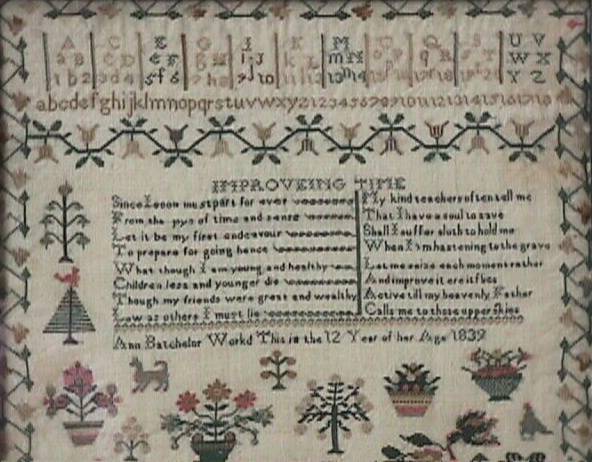 A C D E G I K M O Q S U V
a B c D e F g h i J k L m N o P q R s T W X
1 b 2 3 d 4 5 f 6 7 9 10 13 14 Y Z
abcdefghijklmnopqrstuvwxyz123456789101112131415161718
IMPROVEING TIME
Since I soon must part for ever
From the joys of time and sense
Let it be my first endeavour
To prepare for going hence
What though I am young and healthy
Children less and younger die
Though my friends were great and wealthy
Low as others I must lie
My kind teachers often tell me
That I have a soul to save
Shall I suffer sloth to hold me
When I'm hastening to the grave
Let me seize each moment rather
And improve it ere it flies
Active till my heavenly Father
Calls me to those upper skies
Ann Batchelor Workd This in the 12 Year of her Age 1839